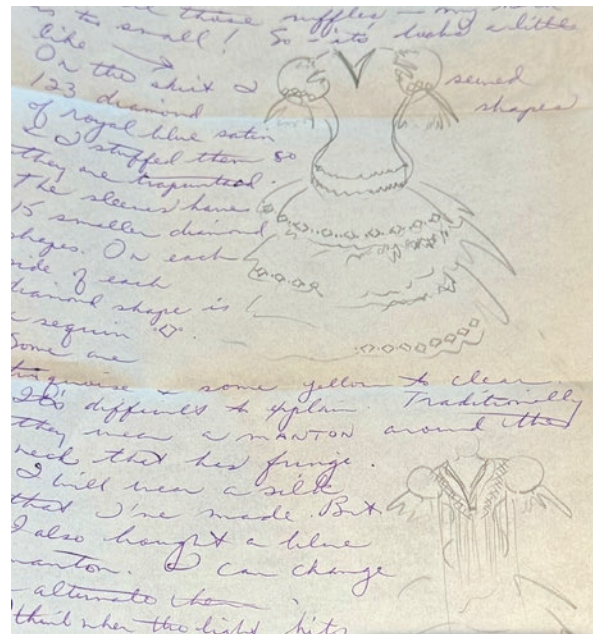 those ruffles — my
is to small! So – its looks a little
like →
On the skirt I sewed
123 diamond shapes
of royal blue satin
& I stuffed them so
they are trapuntoed.
The sleeves have
15 smaller diamond
shapes. On each
side of each
diamond shape is
a sequin
Some are
turquoise & some yellow to clear.
It's difficult to explain. Traditionally
they wear a MANTON around their
neck that has fringe.
I will wear a silk
that I've made. But
I also bought a blue
manton. I can change
– alternate them.
think when the light hits